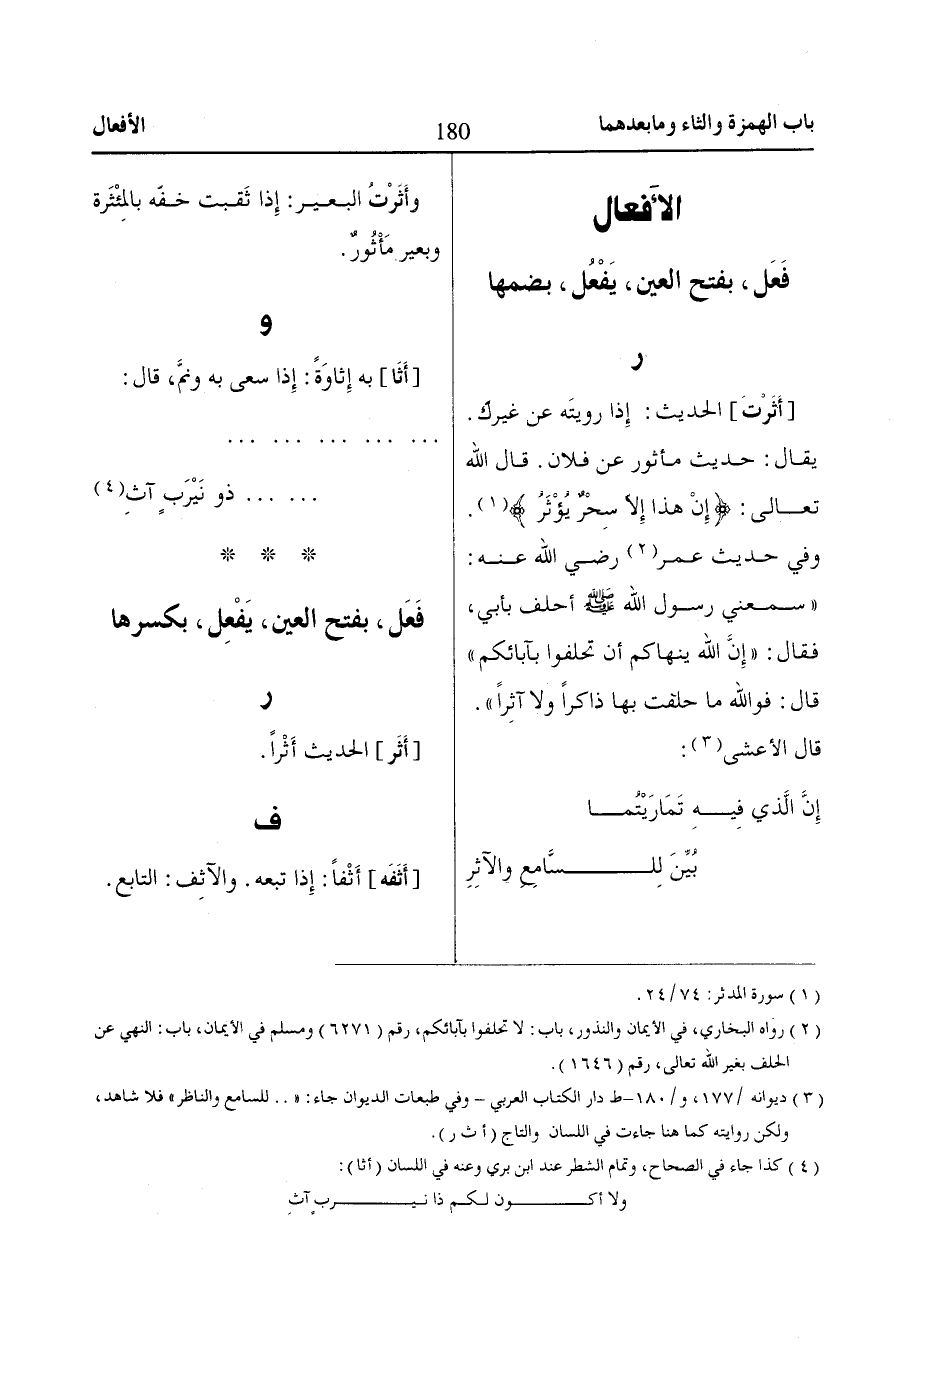 باب الهمزة والثاء ومابعدهما
180
الأفعال
الأفعال
فَعَل، بفتح العين، يَفْعُل، بضمها
ر
[أَثَرْتَ] الحديث: إذا رويتَه عن غيرك.
يقال: حديث مأثور عن فلان. قال الله
تعالى: ﴿إِنْ هذا إِلا سِحْرٌ يُؤْثَرُ﴾(١).
وفي حديث عمر(٢) رضي الله عنه:
«سمعني رسول الله ﷺ أحلف بأبي،
فقال: «إِنَّ الله ينهاكم أن تحلفوا بآبائكم»
قال: فوالله ما حلفت بها ذاكراً ولا آثِراً».
قال الأعشى(٣):
إِنَّ الَّذي فِيـــه تَمَارَيْتُمـــا
بُيِّنَ لِلـــسَّامِعِ والآثِرِ
وأَثَرْتُ البعير: إِذا ثَقبت خفّه بالمِئْثَرة
وبعير مَأْثُورٌ.
و
[أَثَا] به إِثاوَةً: إِذا سعى به ونمَّ، قال:
... ... ... ... ... ...
... ... ذو نَيْرَبٍ آثِ(٤)
* * *
فَعَل، بفتح العين، يَفْعِل، بكسرها
ر
[أَثَر] الحديث أَثْراً.
ف
[أَثَفَه] أَثْفاً: إِذا تبعه. والآثِف: التابع.
(١) سورة المدثر: ٧٤/ ٢٤.
(٢) رواه البخاري، في الأيمان والنذور، باب: لا تحلفوا بآبائكم، رقم (٦٢٧١) ومسلم في الأيمان، باب: النهي عن
الحلف بغير الله تعالى، رقم (١٦٤٦).
(٣) ديوانه /١٧٧، و/١٨٠–ط دار الكتاب العربي – وفي طبعات الديوان جاء: «.. للسامع والناظر» فلا شاهد،
ولكن روايته كما هنا جاءت في اللسان والتاج (أ ث ر).
(٤) كذا جاء في الصحاح، وتمام الشطر عند ابن بري وعنه في اللسان (أثا):
ولا أكـــون لكم ذا نيـــربٍ آثِ